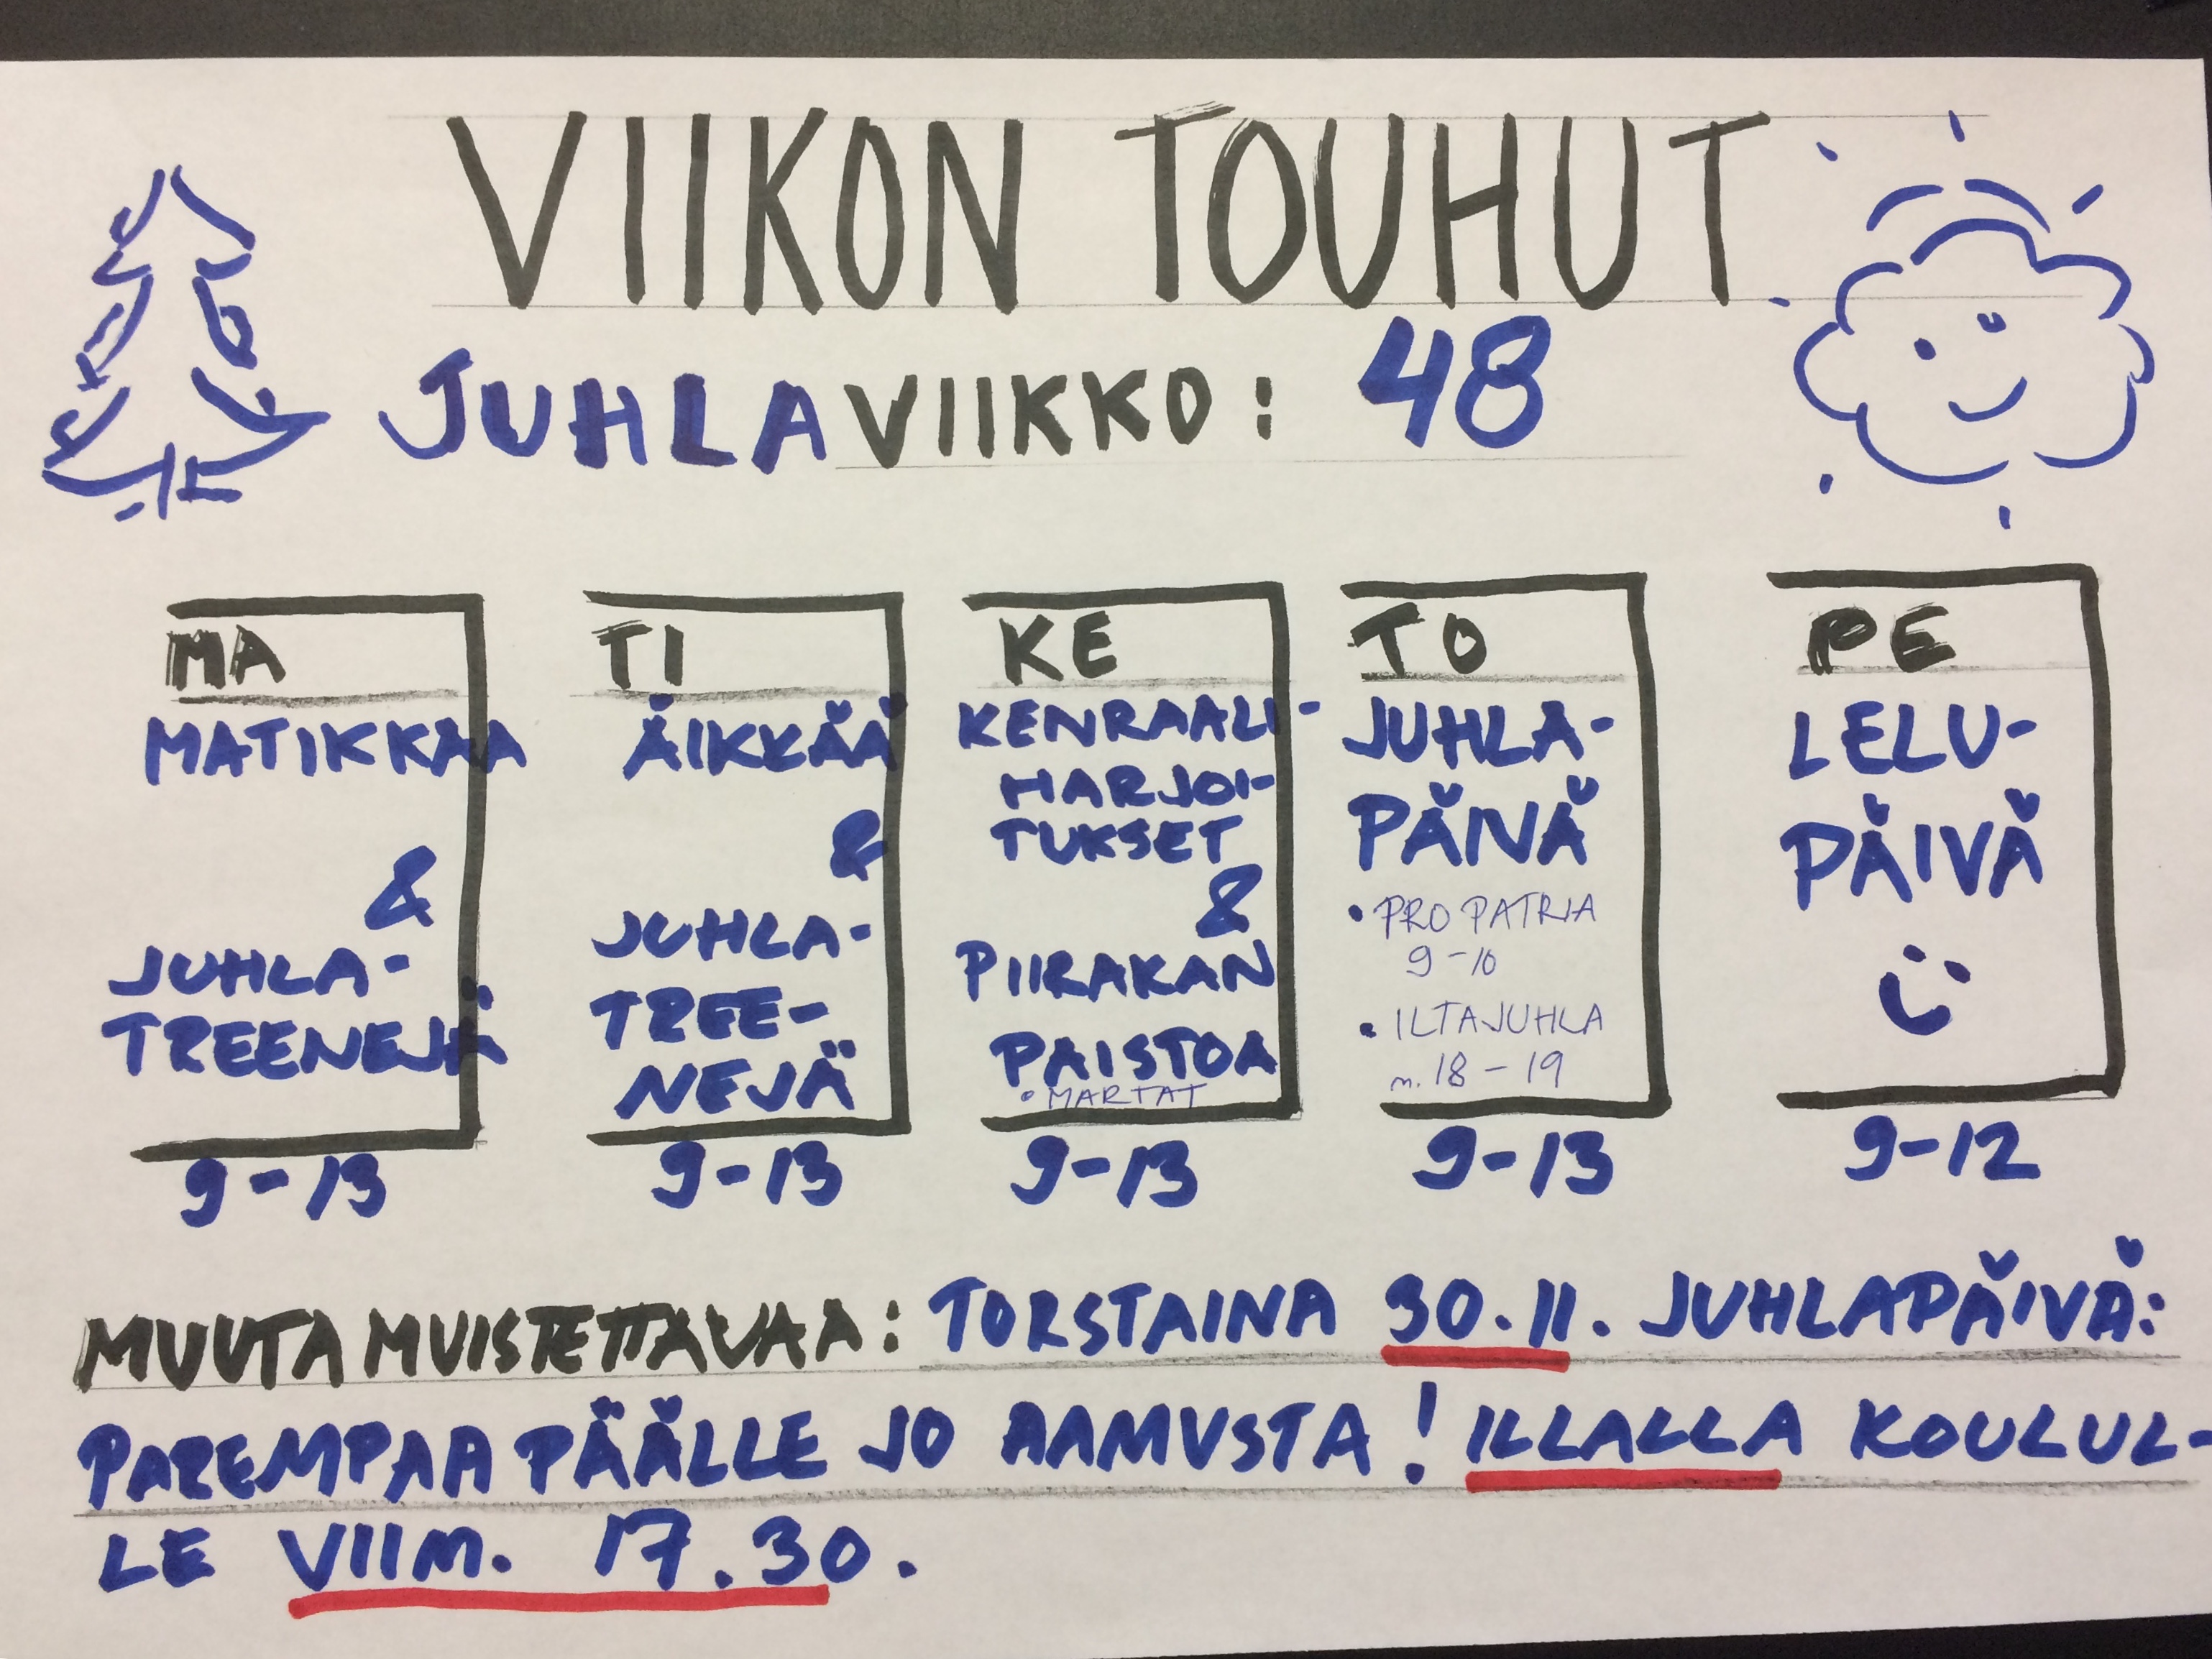 VIIKON TOUHUT
JUHLAVIIKKO: 48
MA
MATIKKAA
&
JUHLA-
TREENEJÄ
9-13
TI
ÄIKKÄÄ
&
JUHLA-
TREE-
NEJÄ
9-13
KE
KENRAALI-
HARJOI-
TUKSET
&
PIIRAKAN
PAISTOA
• MARTAT
9-13
TO
JUHLA-
PÄIVÄ
• PRO PATRIA
9-10
• ILTAJUHLA
n. 18-19
9-13
PE
LELU-
PÄIVÄ
9-12
MUUTA MUISTETTAVAA: TORSTAINA 30.11. JUHLAPÄIVÄ:
PAREMPAA PÄÄLLE JO AAMUSTA! ILLALLA KOULUL-
LE VIIM. 17.30.